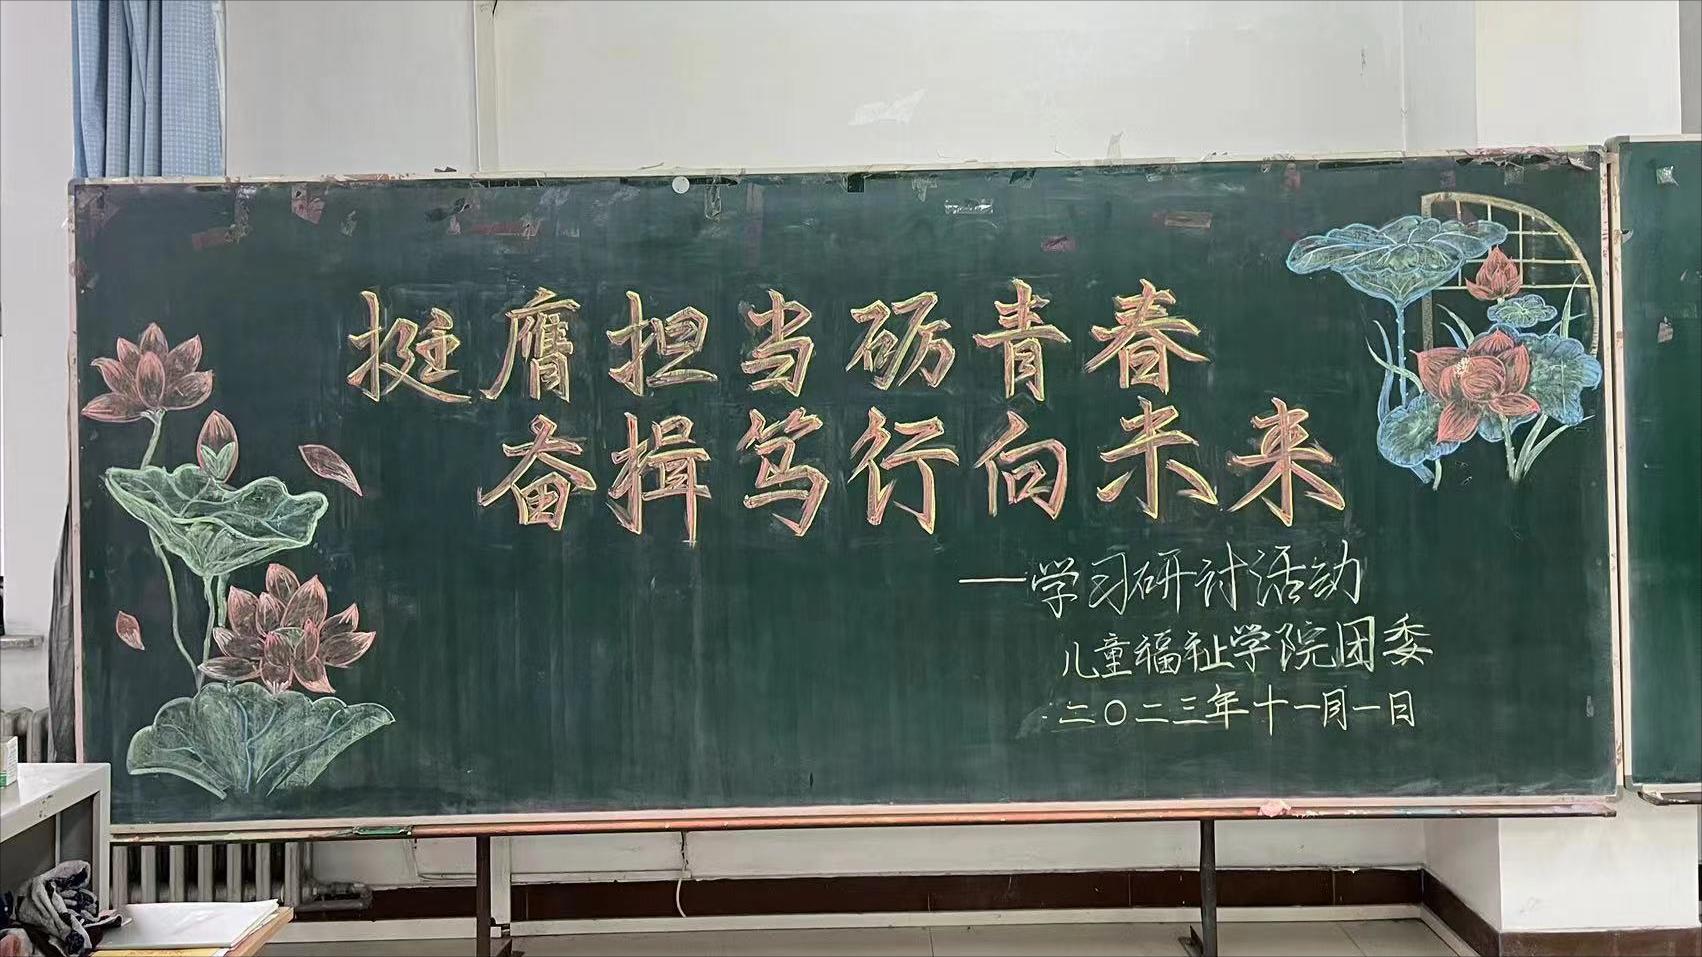 挺膺担当砺青春
奋楫笃行向未来
——学习研讨活动
儿童福祉学院团委
二〇二三年十一月一日